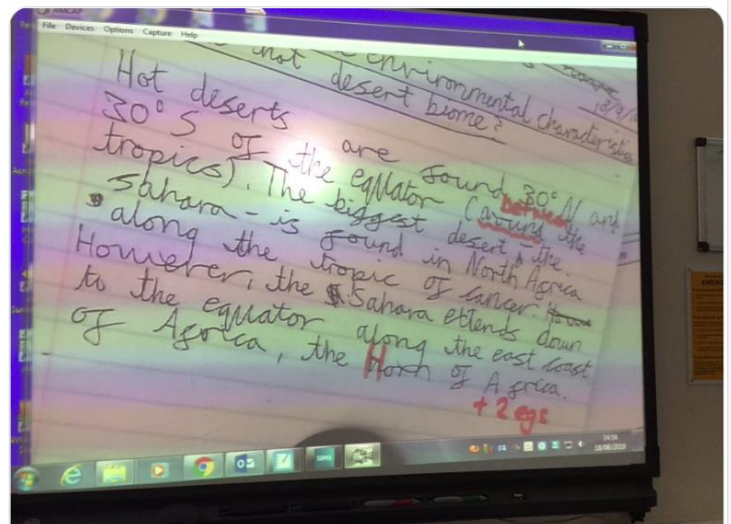 File Devices Options Capture Help
environmental characteristics
hot desert biome?
Hot deserts are found 30°N and
30°S of the equator (around the
between
tropics). The biggest desert - the
Sahara - is found in North Africa
along the tropic of cancer.
However, the Sahara extends down
to the equator along the east coast
of Africa, the Horn of Africa.
+ 2 egs
14:54
18/06/2019